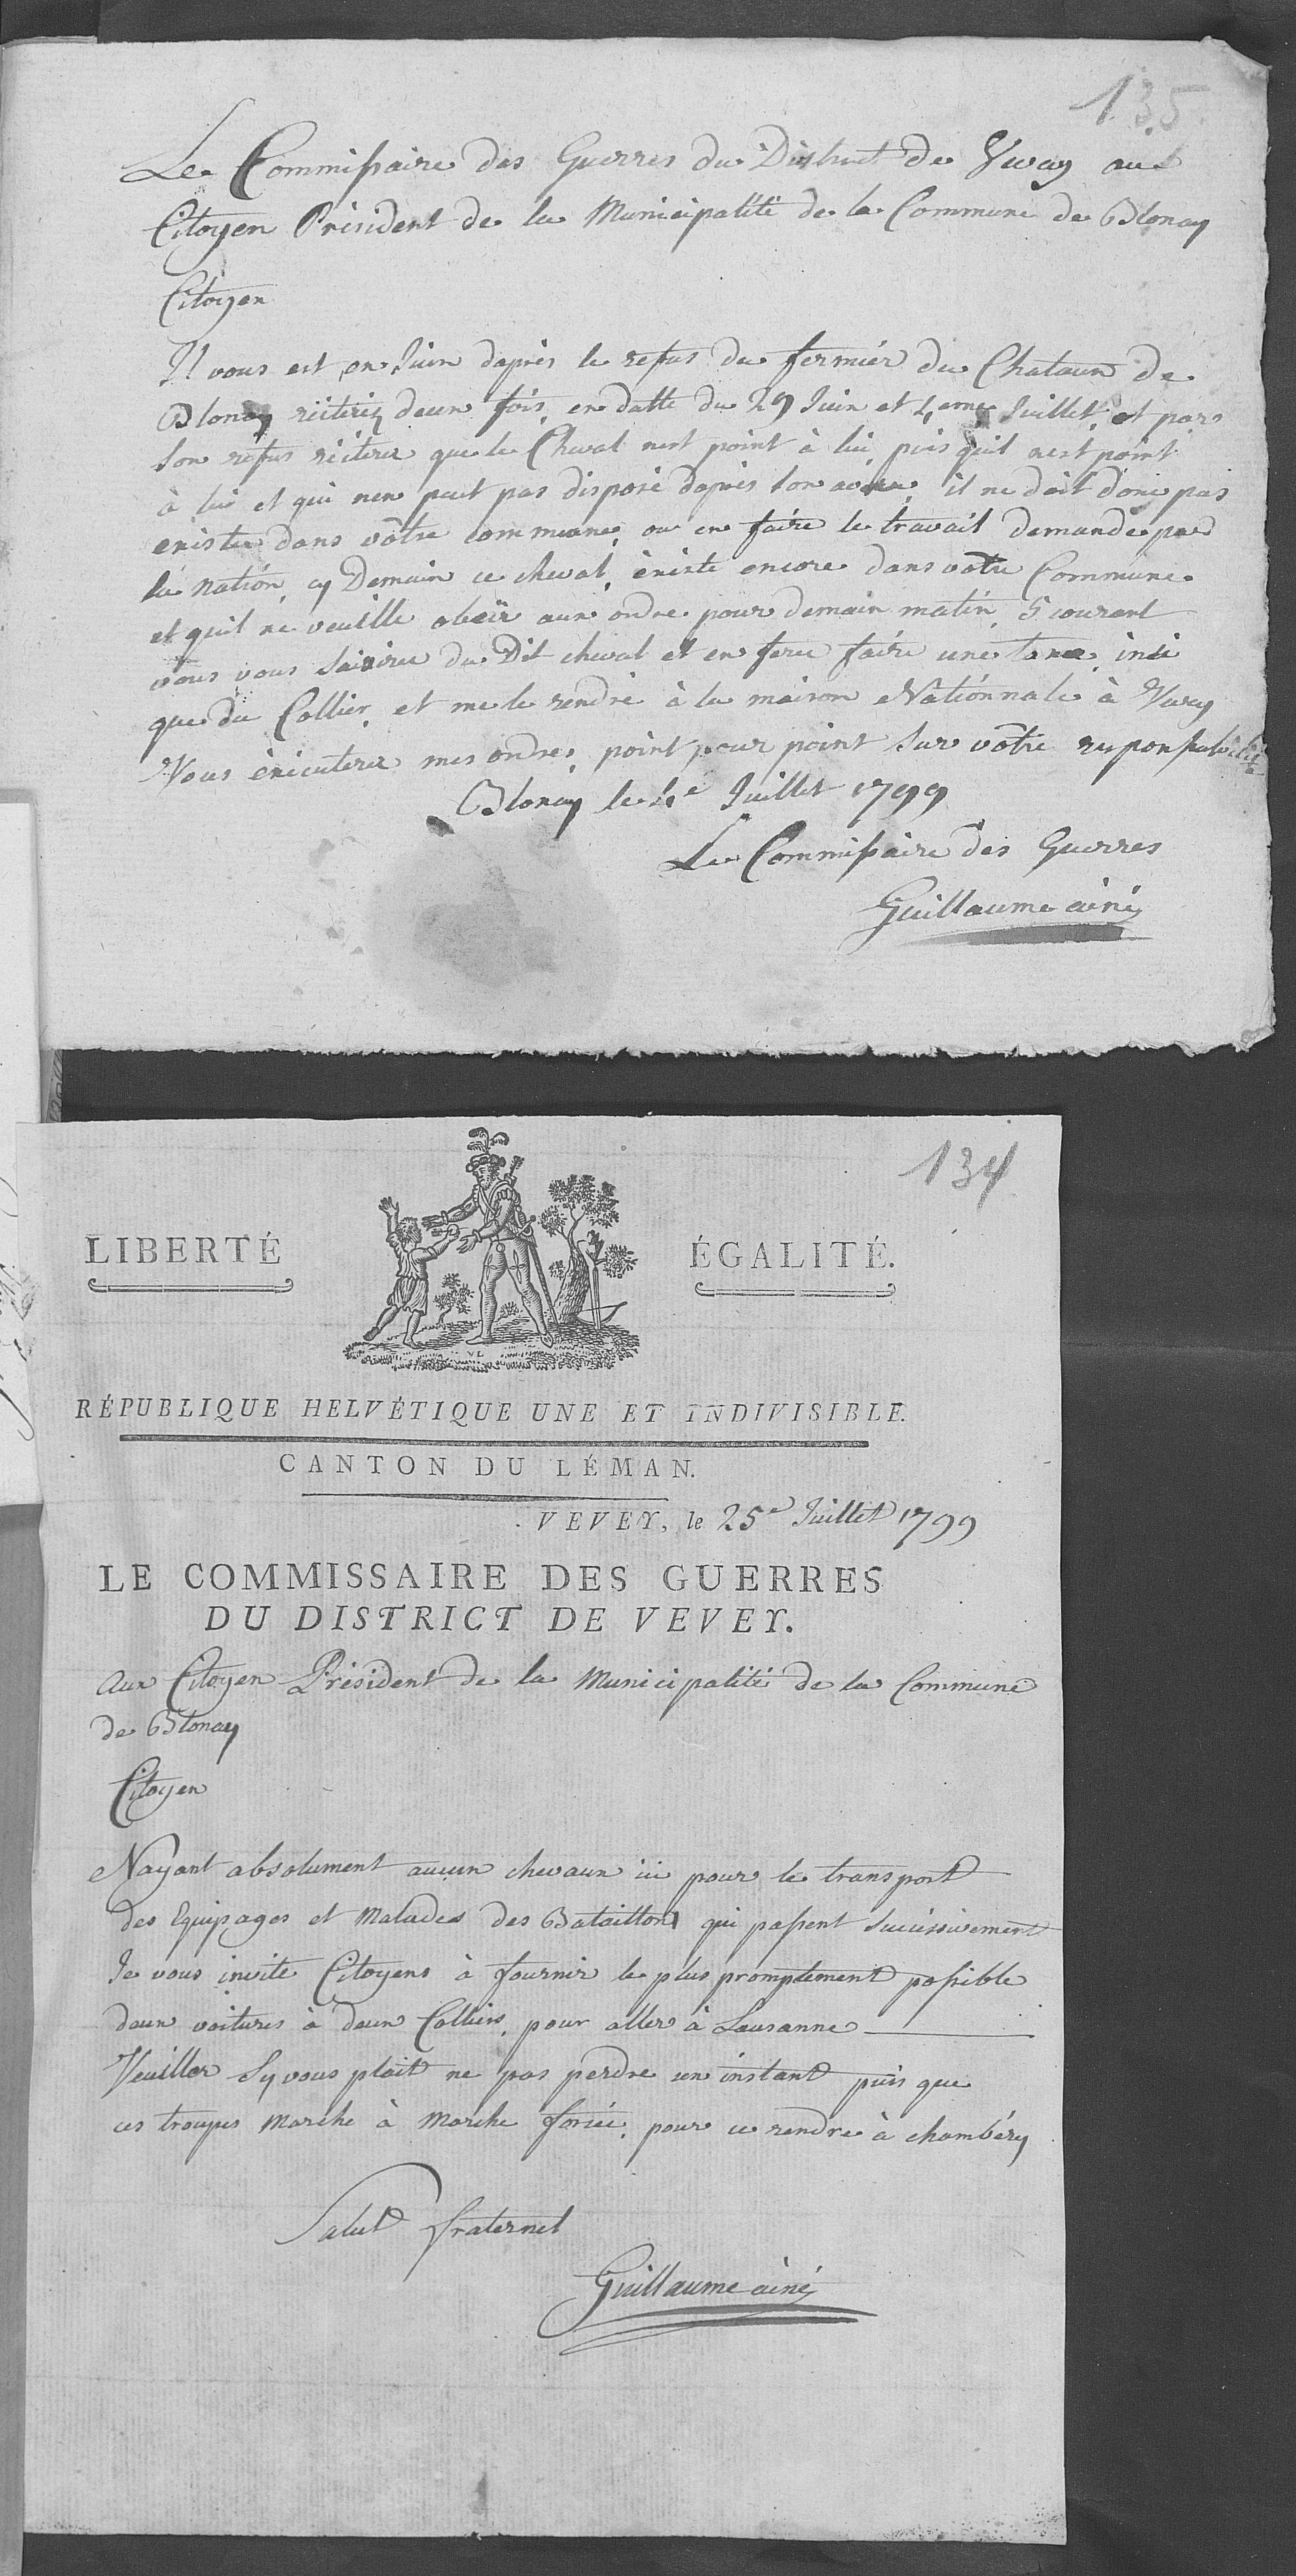 135
Le Commissaire des Guerres du District de Vevay au
Citoyen Président de la Municipalité de la Commune de Blonay
Citoyen
Il vous est en Juin daprès le refus du fermier du Chataux de
Blonay réiteréz deux fois, en datte du 29 Juin et 4eme Juillet, et par
son refus réiterer que le Cheval nest point à lui, puis quil nest point
à lui et qui nen peut pas disposé dapres son aveu, il ne doit donc pas
exister dans vôtre commune, ou en faire le travail demandé par
la Nation, cy Demain ce cheval, éxiste encore dans votre Commune
et quil ne veuille obeïr aux ordre pour demain matin, 5 courant
vous vous saisirer du Dit cheval et en ferer faire une taxe, insi
que du Collier, et me le rendre à la maison Nationnale à Vevey
Vous éxécuterer mes ordres, point pour point Sur vôtre responsabilité
Blonay le 4e Juillet 1799
Le Commissaire des Guerres
Guillaume ainé
134
LIBERTÉ
ÉGALITÉ.
RÉPUBLIQUE HELVÉTIQUE UNE ET INDIVISIBLE.
CANTON DU LÉMAN.
VEVEY, le 25e Juillet 1799
LE COMMISSAIRE DES GUERRES
DU DISTRICT DE VEVEY.
Aux Citoyen Président de la Municipalité de la Commune
de Blonay
Citoyen
Nayant absolument aucun chevaux ici pour le transport
des Equipages et Malades des Bataillons qui passent successivement
Je vous invite Citoyens à fournir le plus promptement possible
deux voitures à deux Colliers, pour aller à Lausanne
Veuiller Sy vous plait ne pas perdre un instant puis que
ces troupes Marche à Marche forcée, pour ce rendre à chambéry
Salut fraternel
Guillaume ainé